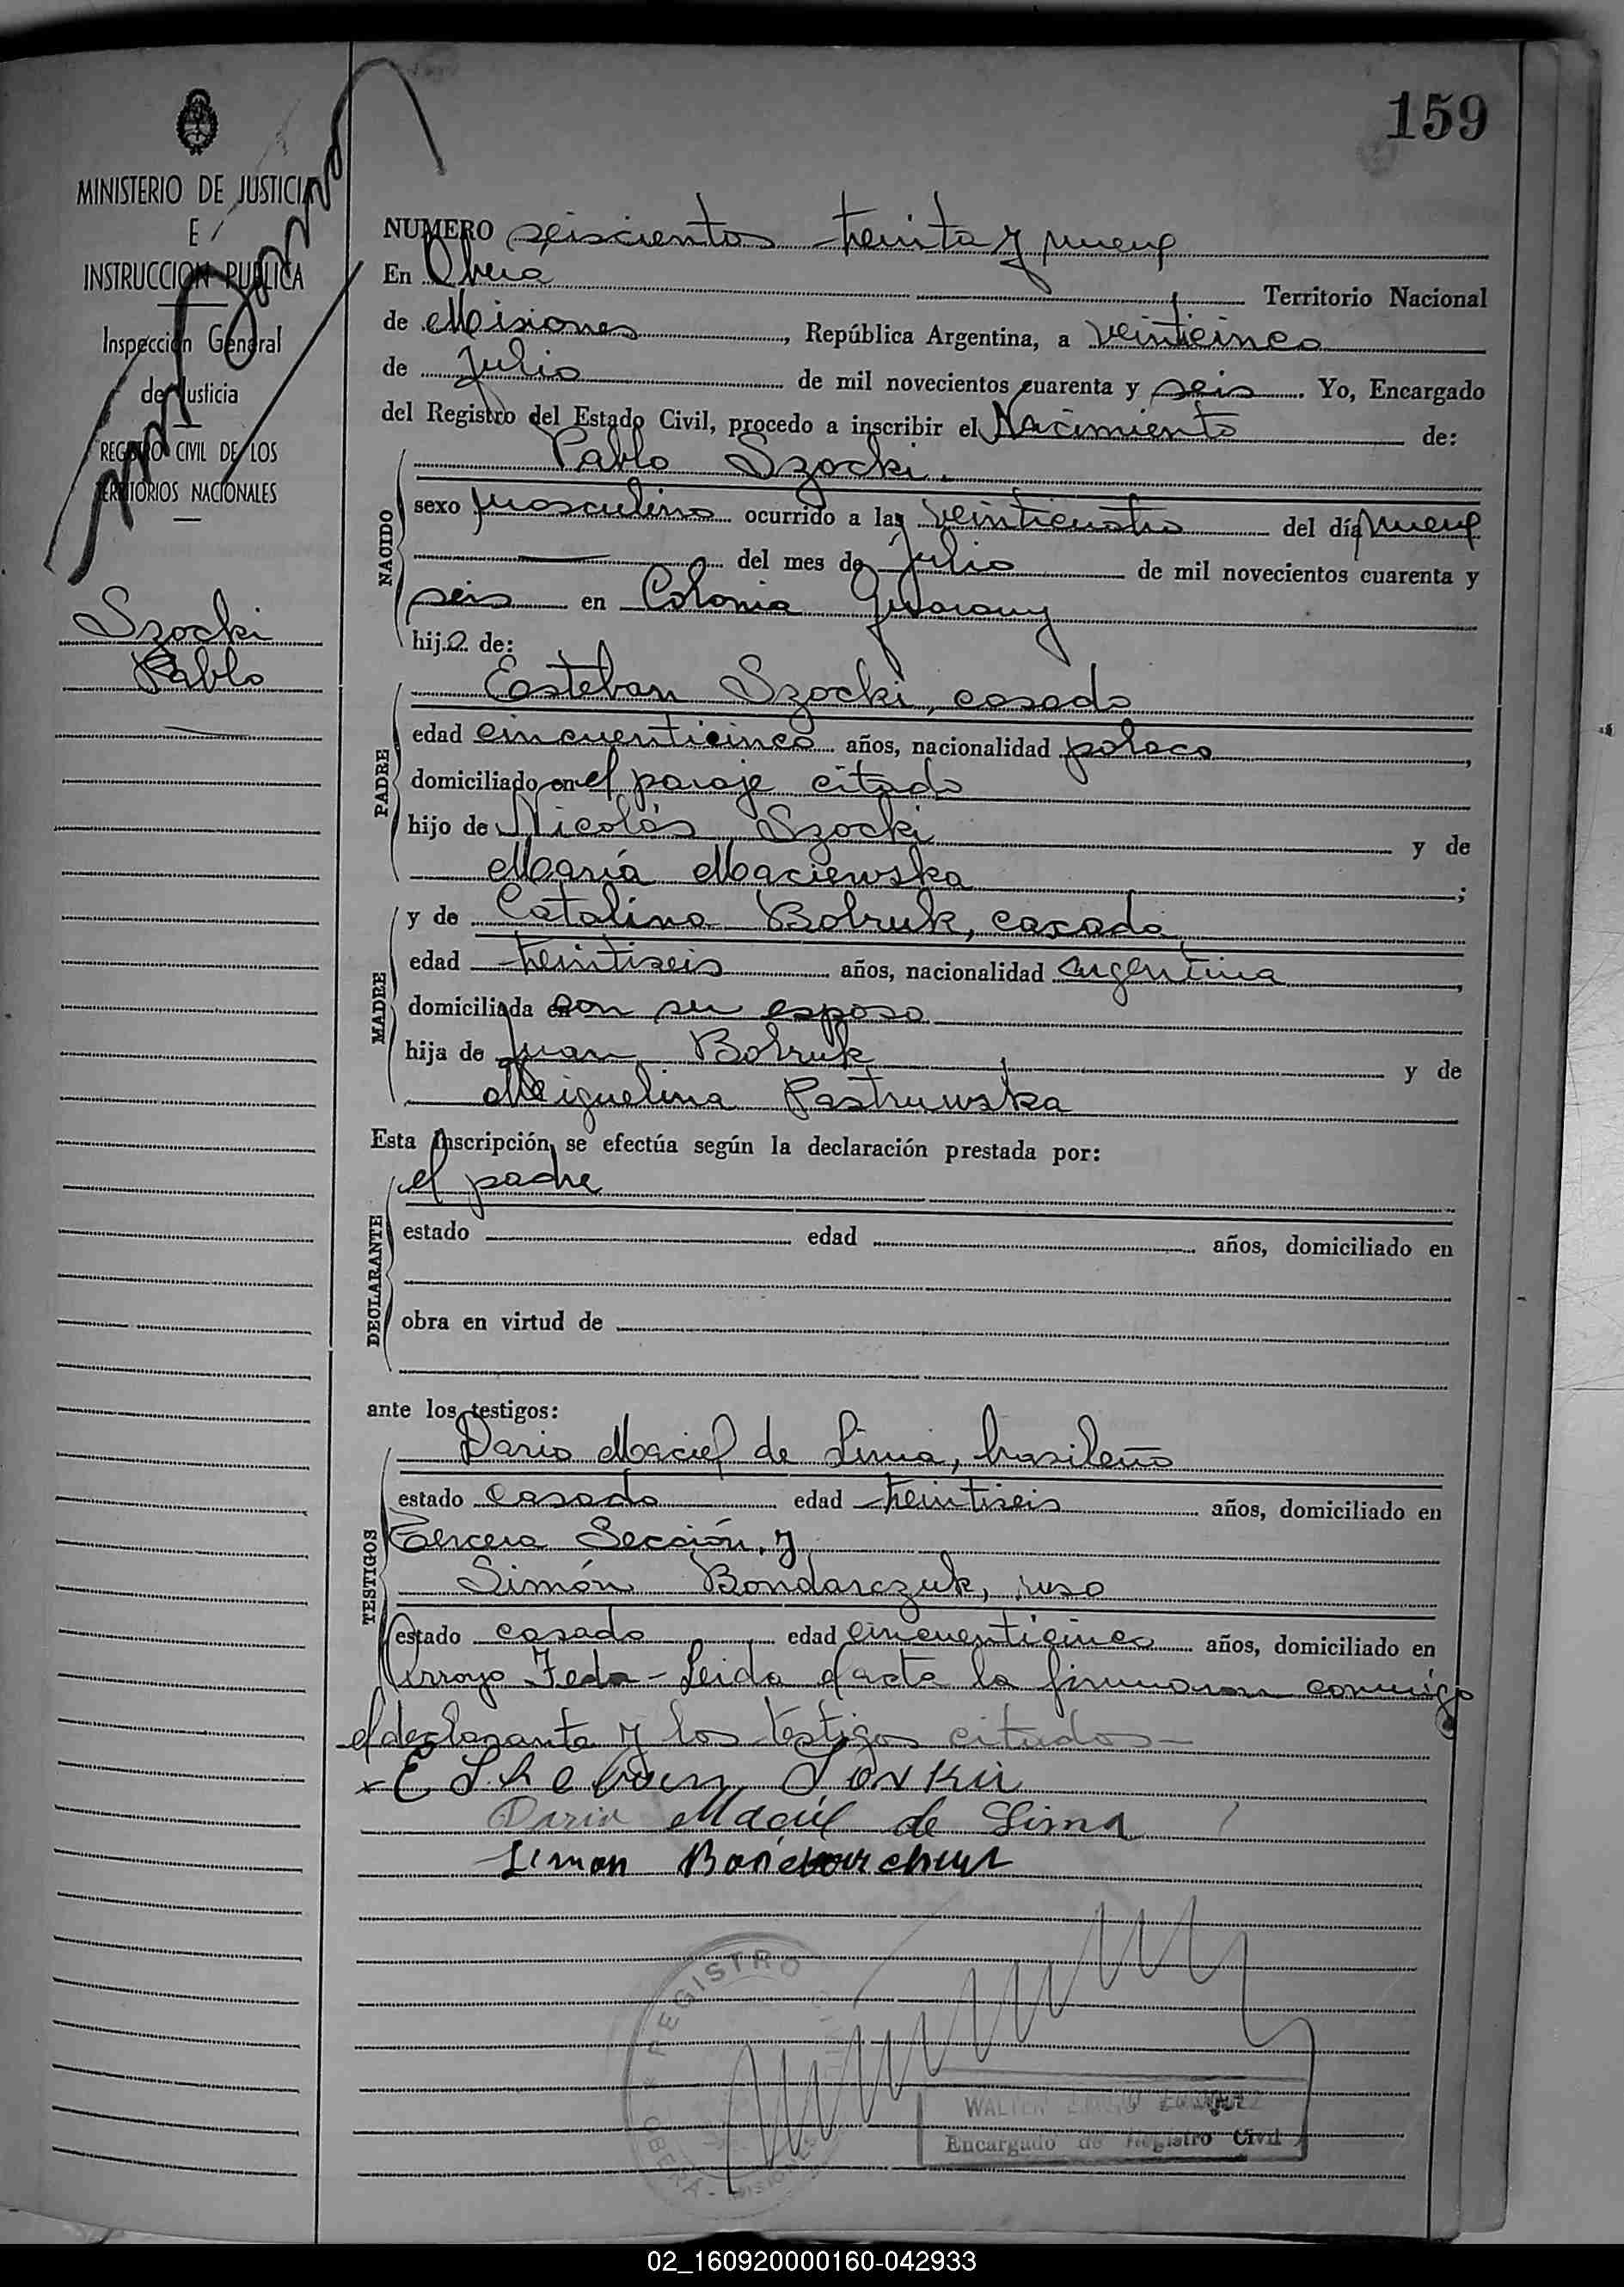 159
MINISTERIO DE JUSTICIA
E
INSTRUCCION PUBLICA
Inspección General
de Justicia
REGISTRO CIVIL DE LOS
TERRITORIOS NACIONALES
Szocki
Pablo
NUMERO seiscientos treinta y nueve
En Obera Territorio Nacional
de Misiones, República Argentina, a veinticinco
de Julio de mil novecientos cuarenta y seis. Yo, Encargado
del Registro del Estado Civil, procedo a inscribir el Nacimiento de:
Pablo Szocki.
NACIDO
sexo masculino ocurrido a las veinticuatro del día nueve
del mes de Julio de mil novecientos cuarenta y
seis en Colonia Guarany
hijo de:
PADRE
Esteban Szocki, casado
edad cincuenticinco años, nacionalidad polaco,
domiciliado en el paraje citado
hijo de Nicolás Szocki y de
María Maciewska;
MADRE
y de Catalina Bolruk, casada,
edad treintiseis años, nacionalidad Argentina,
domiciliada en con su esposo
hija de Juan Bolruk y de
Miguelina Pastruwska
Esta inscripción, se efectúa según la declaración prestada por:
DECLARANTE
el padre
estado edad años, domiciliado en
obra en virtud de
ante los testigos:
TESTIGOS
Dario Maciel de Lima, brasileño
estado casado edad treintiseis años, domiciliado en
Tercera Sección, y
Simón Bondarczuk, ruso
estado casado edad cincuenticinco años, domiciliado en
Arroyo - Leida el acta la firmaron conmigo
el declarante y los testigos citados-
Dario Maciel de Lima
Simon
REGISTRO
OBERA - MISIONES
WALTER
Encargado de Registro Civil
02_160920000160-042933